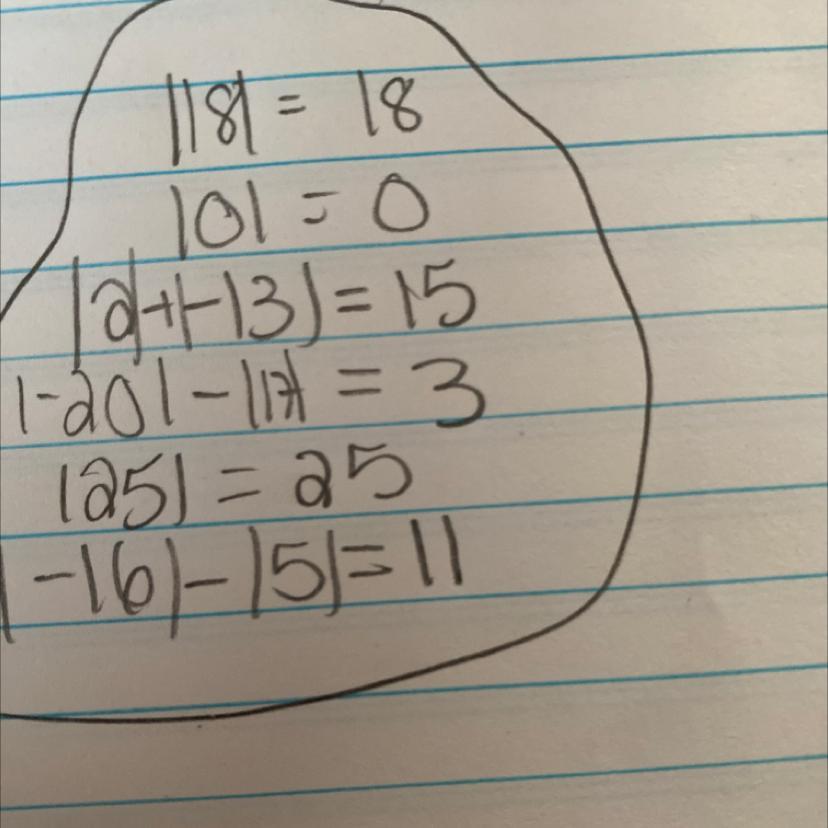 |18| = 18
|0| = 0
|2|+|-13| = 15
|-20| - |17| = 3
|25| = 25
|-16| - |5| = 11